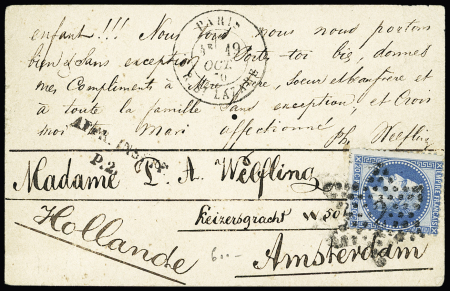 enfant!!! Nous tous nous nous portons
bien & Sans exception Porte-toi bien, donnes
mes Compliments à Mère, Soeur et beaufrère et
à toute la famille Sans exception, et Crois
moi ton Mari affectionné
Ph. Welfling
PARIS
19
OCT.
70
R. ST LAZARE
AFFR. INSUFF.
P.2.
Madame L. A. Welfling
Keizersgracht W 50
Hollande
6..-
Amsterdam